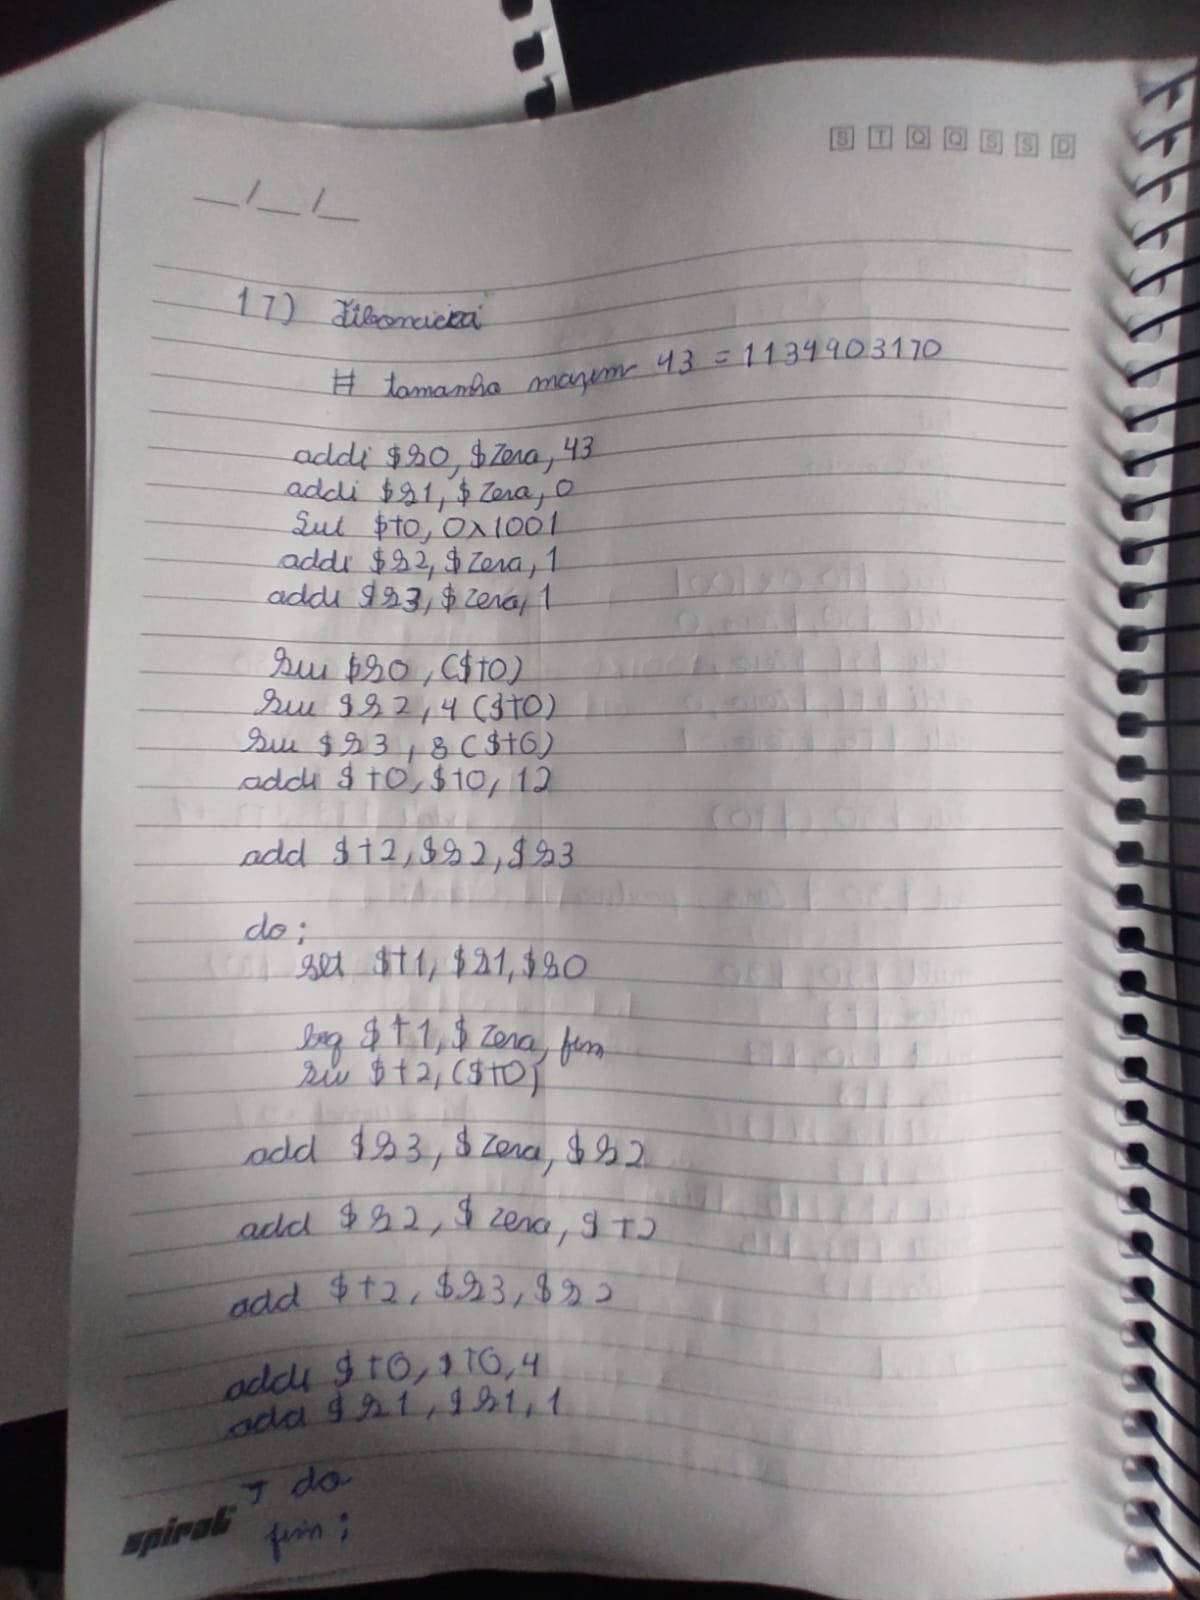 S T Q Q S S D
__/__/__
17) Fibonacci
# tamanho maxim 43 = 1134903170
addi $s0, $zero, 43
addi $s1, $zero, 0
lui $t0, 0x1001
addi $s2, $zero, 1
addi $s3, $zero, 1
sw $s0, ($t0)
sw $s2, 4 ($t0)
sw $s3, 8 ($t0)
addi $t0, $t0, 12
add $t2, $s2, $s3
do:
slt $t1, $s1, $s0
beq $t1, $zero, fim
sw $t2, ($t0)
add $s3, $zero, $s2
add $s2, $zero, $t2
add $t2, $s3, $s2
addi $t0, $t0, 4
add $s1, $s1, 1
J do
fim:
spiral